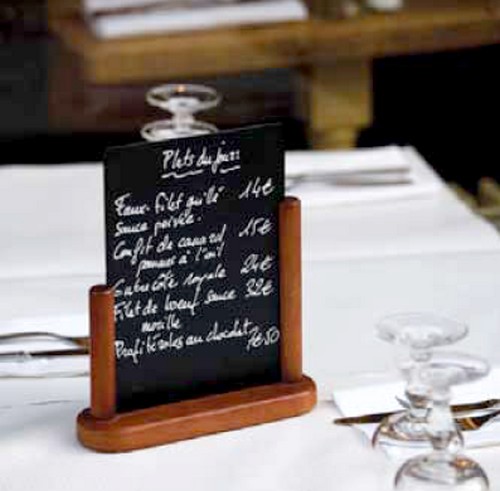 Plats du jour
Faux-filet grillé 14€
Sauce poivre.
Confit de canard 15€
pommes à l'ail
Entrecôte royale 24€
Filet de boeuf sauce 32€
morille
Profiteroles au chocolat 7€50